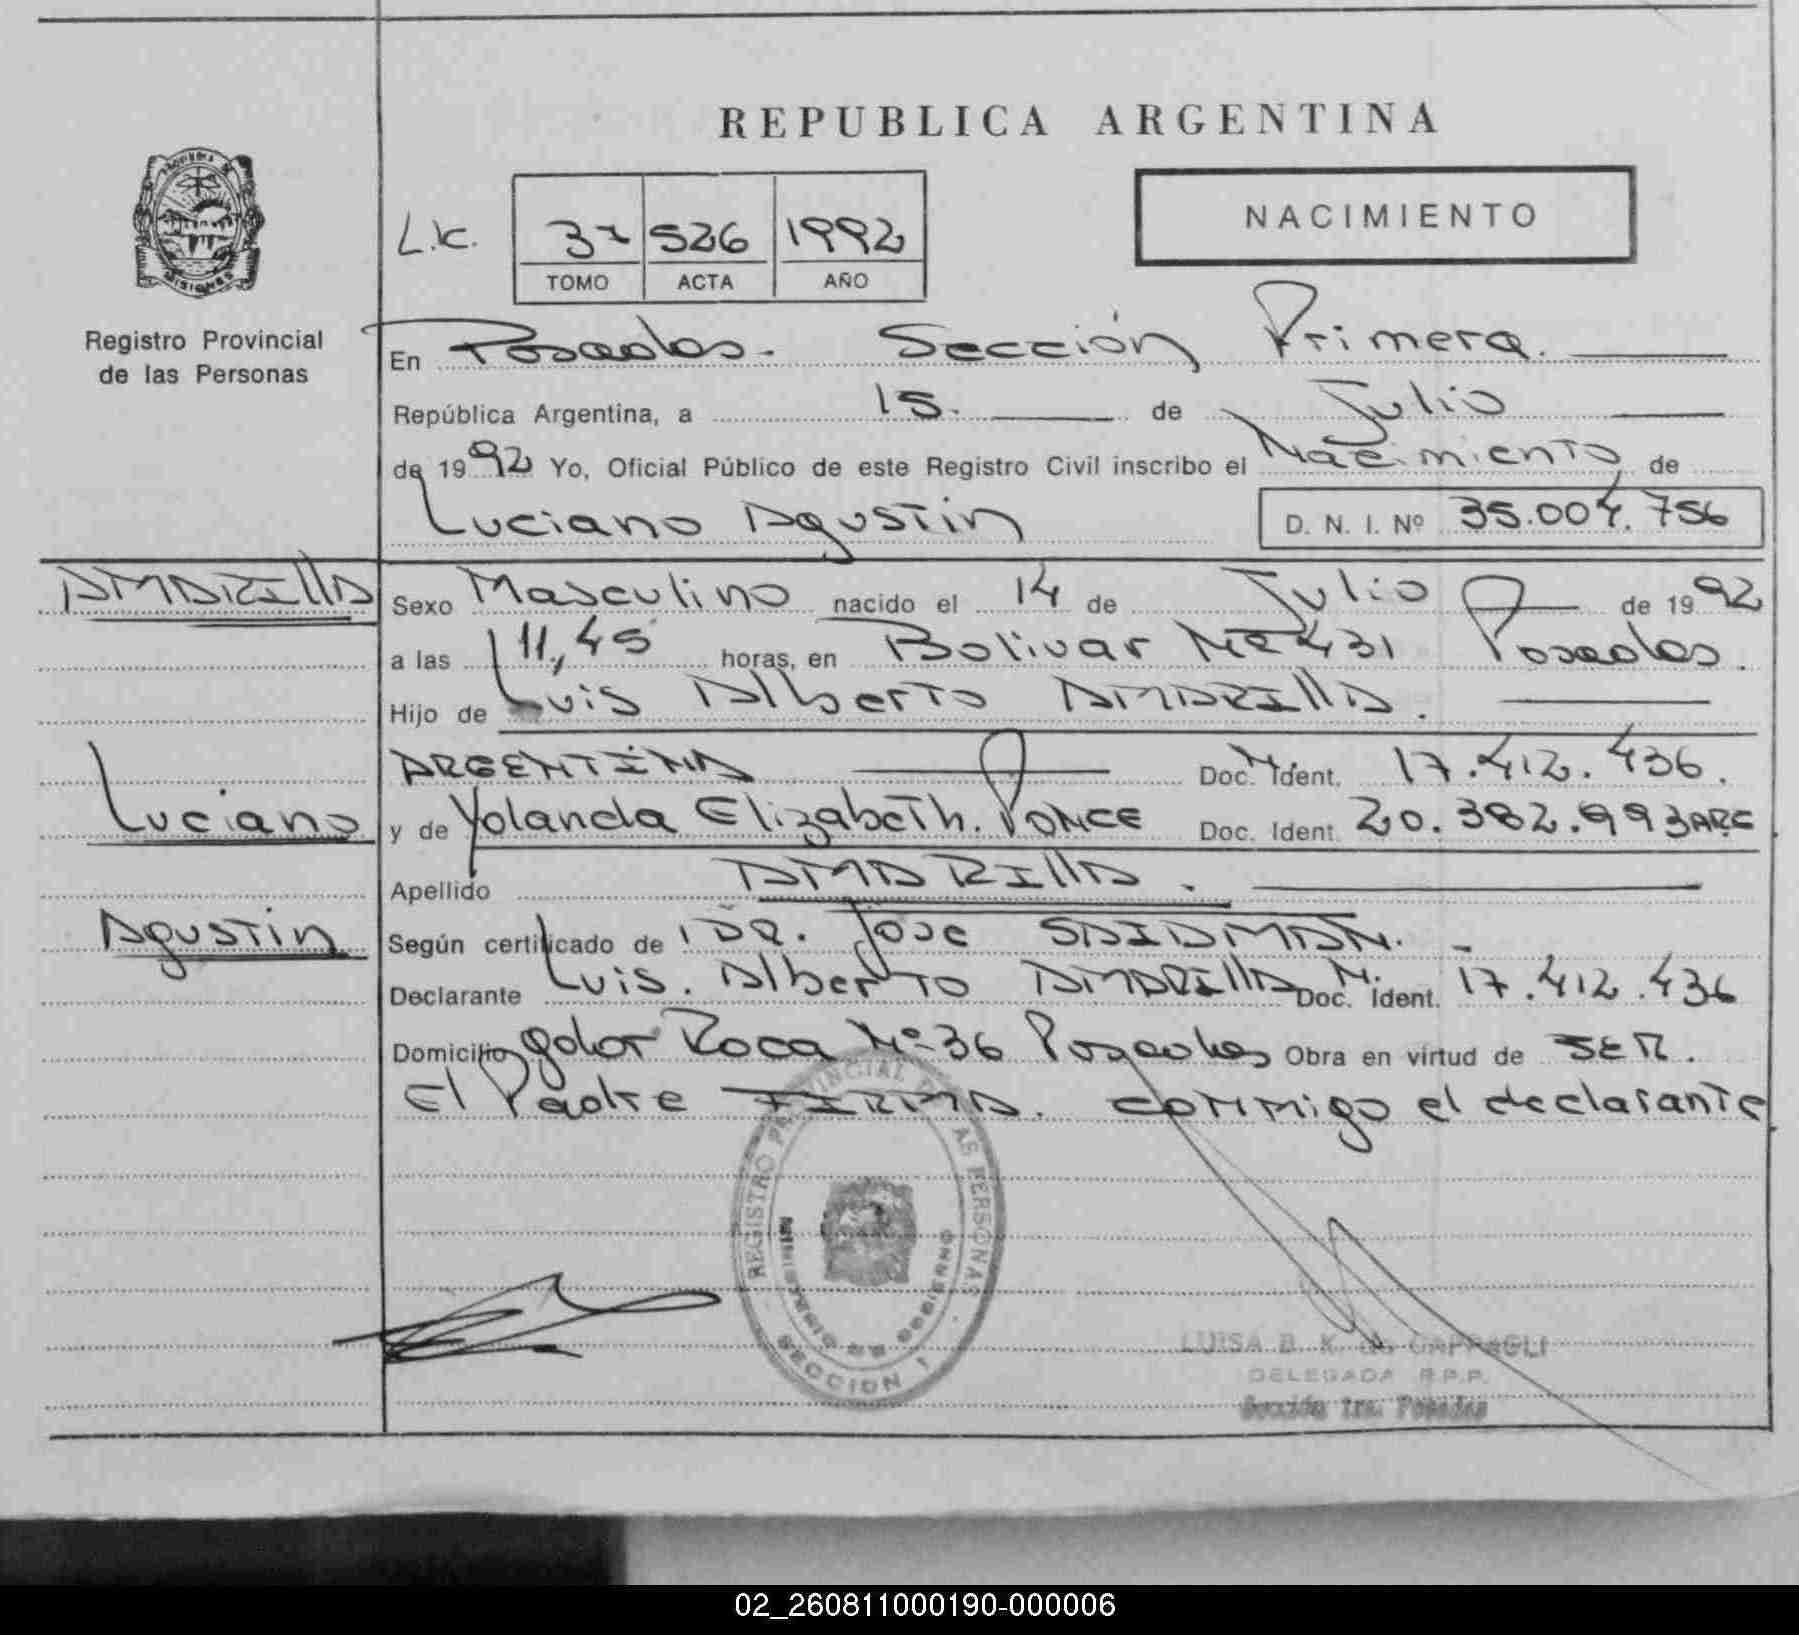 REPUBLICA ARGENTINA
NACIMIENTO
L.K. 526 1992
TOMO ACTA AÑO
MISIONES
Registro Provincial
de las Personas
En Posadas. Sección Primera.
República Argentina, a 15. de Julio
de 1992 Yo, Oficial Público de este Registro Civil inscribo el Nacimiento de
Luciano Agustin D. N. I. Nº 35.004.756
AMARILLA
Sexo Masculino nacido el 14 de Julio de 1992
a las 11,45 horas, en Bolivar Nº 431 Posadas.
Hijo de Luis Alberto AMARILLA.
ARGENTINA Doc. Ident. 17.412.436.
Luciano
y de Yolanda Elizabeth. PONCE Doc. Ident. 20.382.993 ARG
Apellido AMARILLA.
Agustin
Según certificado de DR. Jose SAIDMAN.
Declarante Luis. Alberto AMARILLA Doc. Ident. 17.412.436
Domicilio Roca Nº 36 Posadas Obra en virtud de SER.
El Padre FIRMA. conmigo el declarante
REGISTRO PROVINCIAL DE LAS PERSONAS
MINISTERIO DE GOBIERNO
SECCION 1
LUISA B. K. de
DELEGADA R.P.P.
Sección 1ra. Posadas
02_260811000190-000006